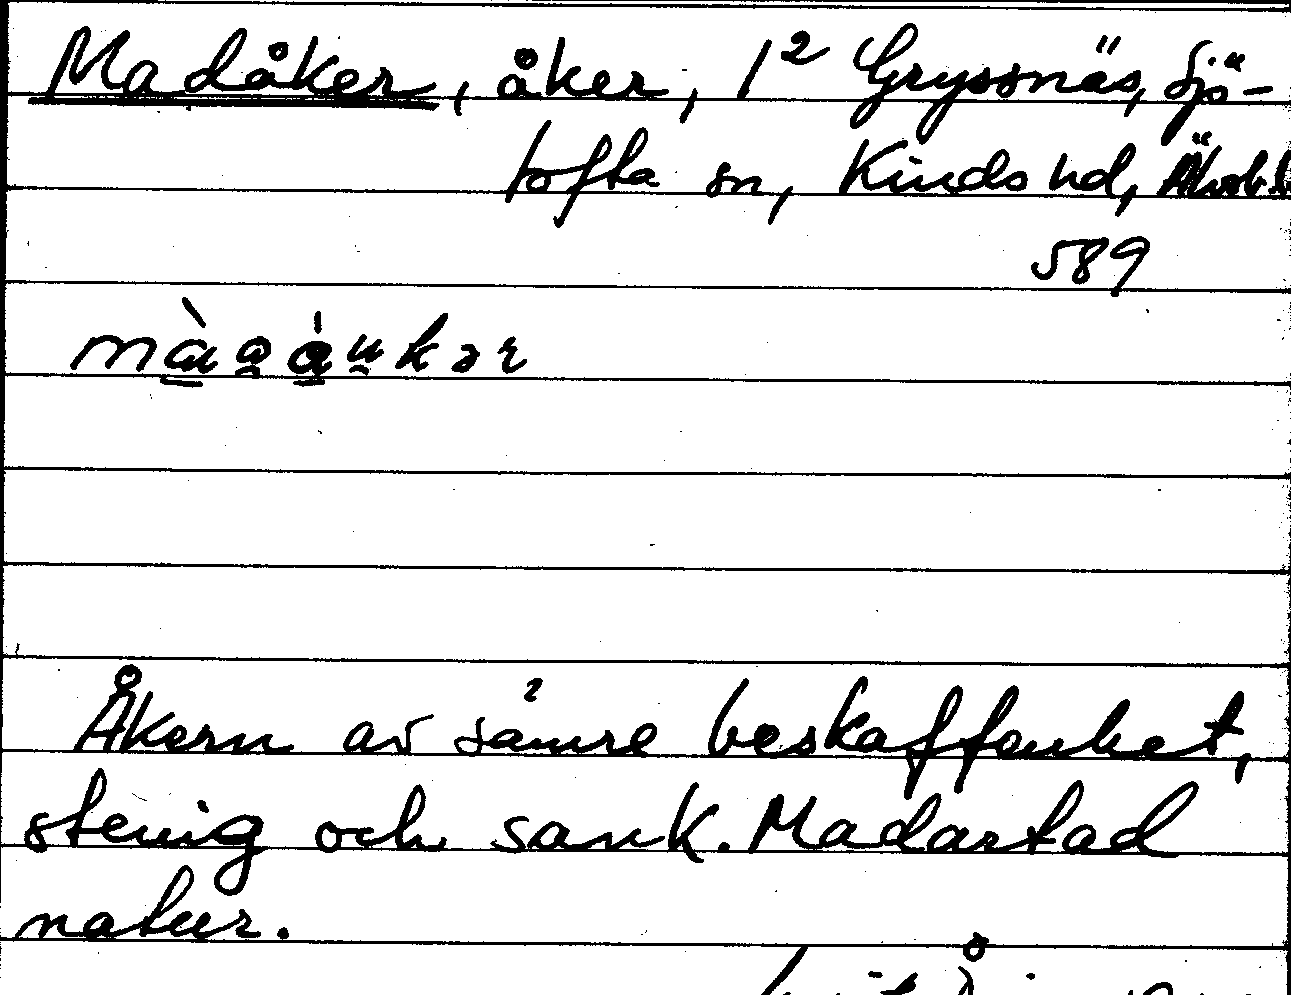 Madåker, åker, 1² Gryssnäs, Sjö-
tofta sn, Kinds hd, Älvsb.l.
589
Åkern av sämre beskaffenhet,
stenig och sank. Madartad
natur.